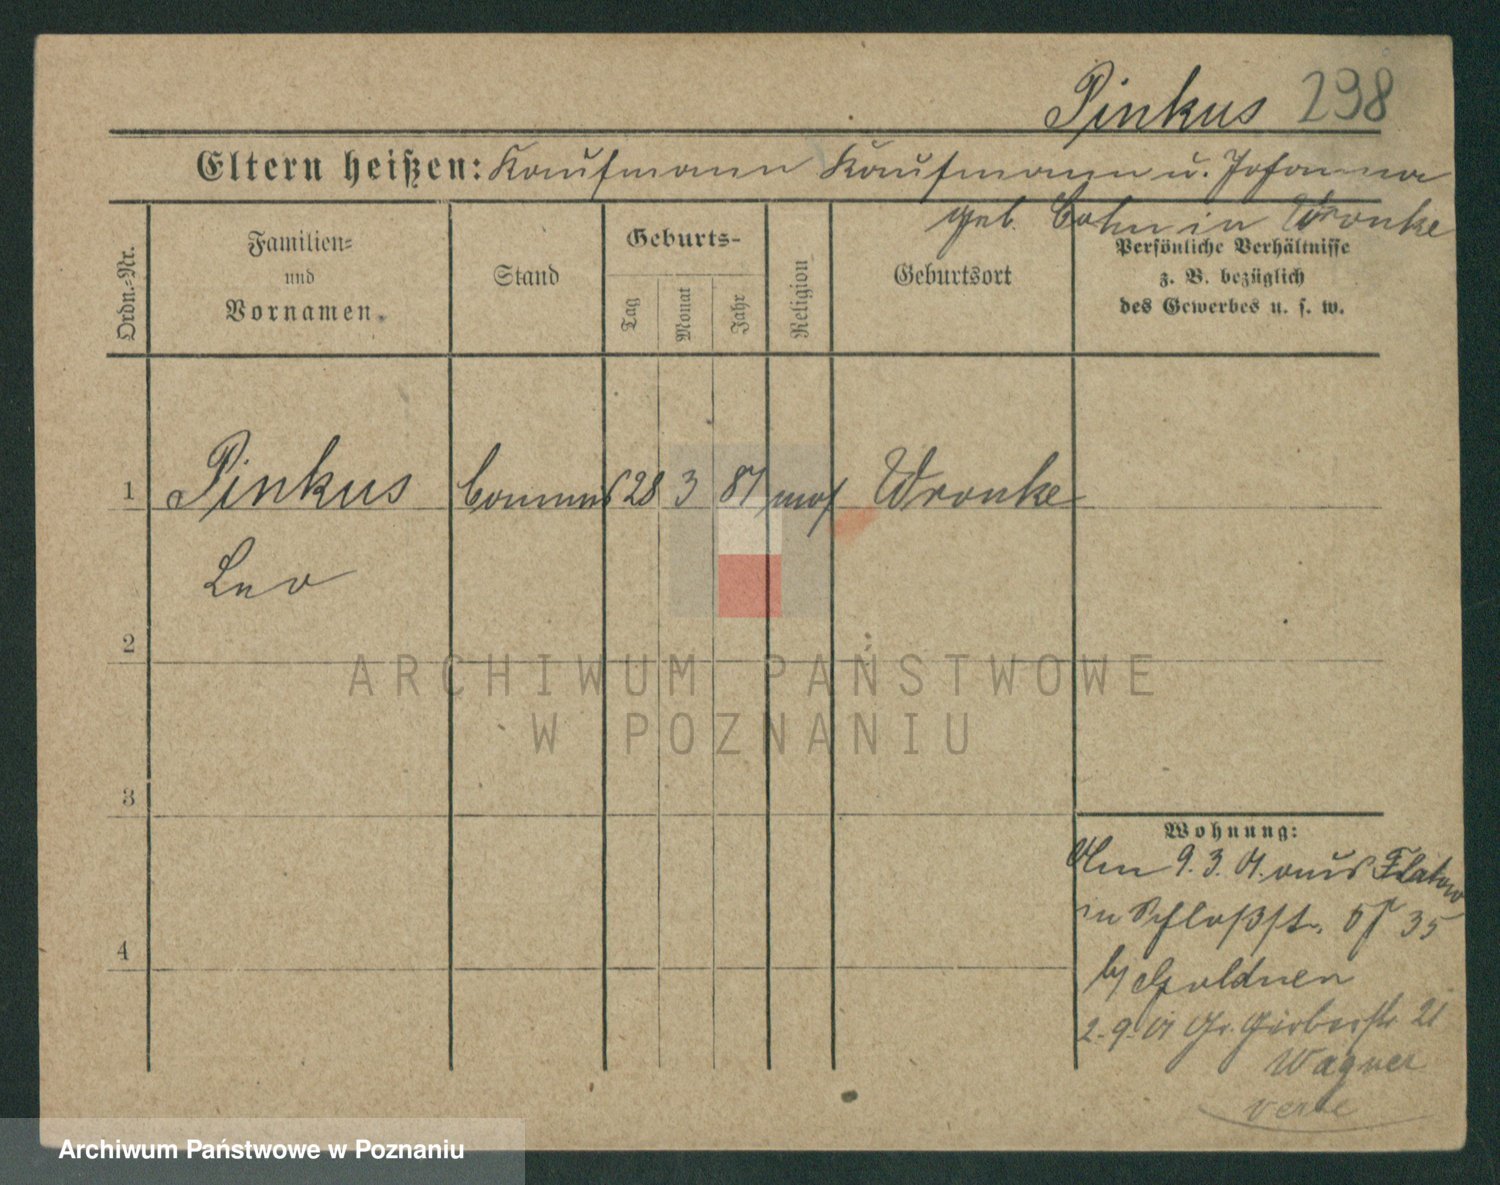 Pinkus 298
Eltern heißen: Kaufmann Kaufmann u. Johanna
geb. Cohn in Wronke
Ordn.-Nr.
Familien-
und
Vornamen.
Stand
Geburts-
Tag
Monat
Jahr
Religion
Geburtsort
Persönliche Verhältnisse
z. B. bezüglich
des Gewerbes u. s. w.
1 Pinkus Commis 28 3 87 mos Wronke
Leo
2
ARCHIWUM PAŃSTWOWE
W POZNANIU
3
Wohnung:
Am 9. 3. 07. aus Flatow
in Schloßst. 35
4
b/ Goldner
2. 9. 07 Gr. Gerberstr 21
Wagner
Archiwum Państwowe w Poznaniu